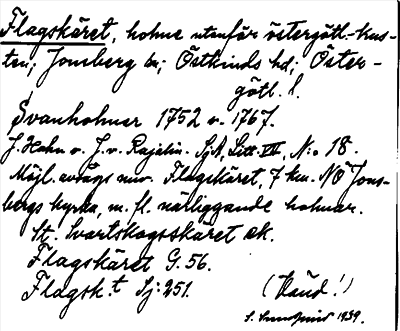 Flagskäret, holme utanför östergötl.-kus-
ten; Jonsberg sn; Östkinds hd; Öster-
götl. l.
Svanholmer 1752 o. 1767.
J. Hahn o. J. v. Rajalin. SjA, Litt. VII, N:o 18.
Möjl. avsågs nuv. Flagskäret, 7 km. NO Jons-
bergs kyrka, m. fl. närliggande holmar.
St. Svartskogsskäret ek.
Flagskäret G. 56.
Flagsk:t Sj: 251.
(Känd!)
S. 1939.